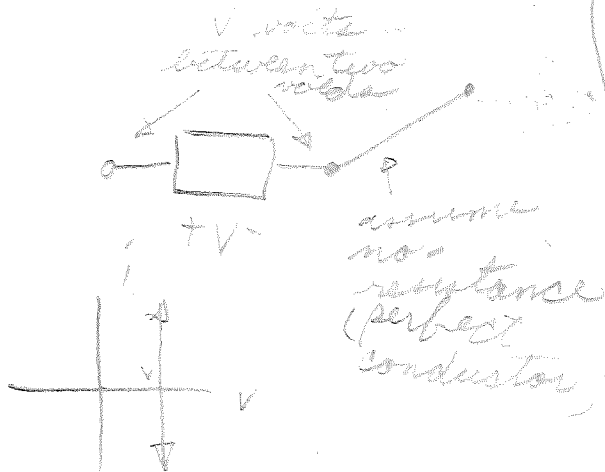 V volts
between two
+ V -
assume
no
resistance
(perfect
conductor)
i
v
V